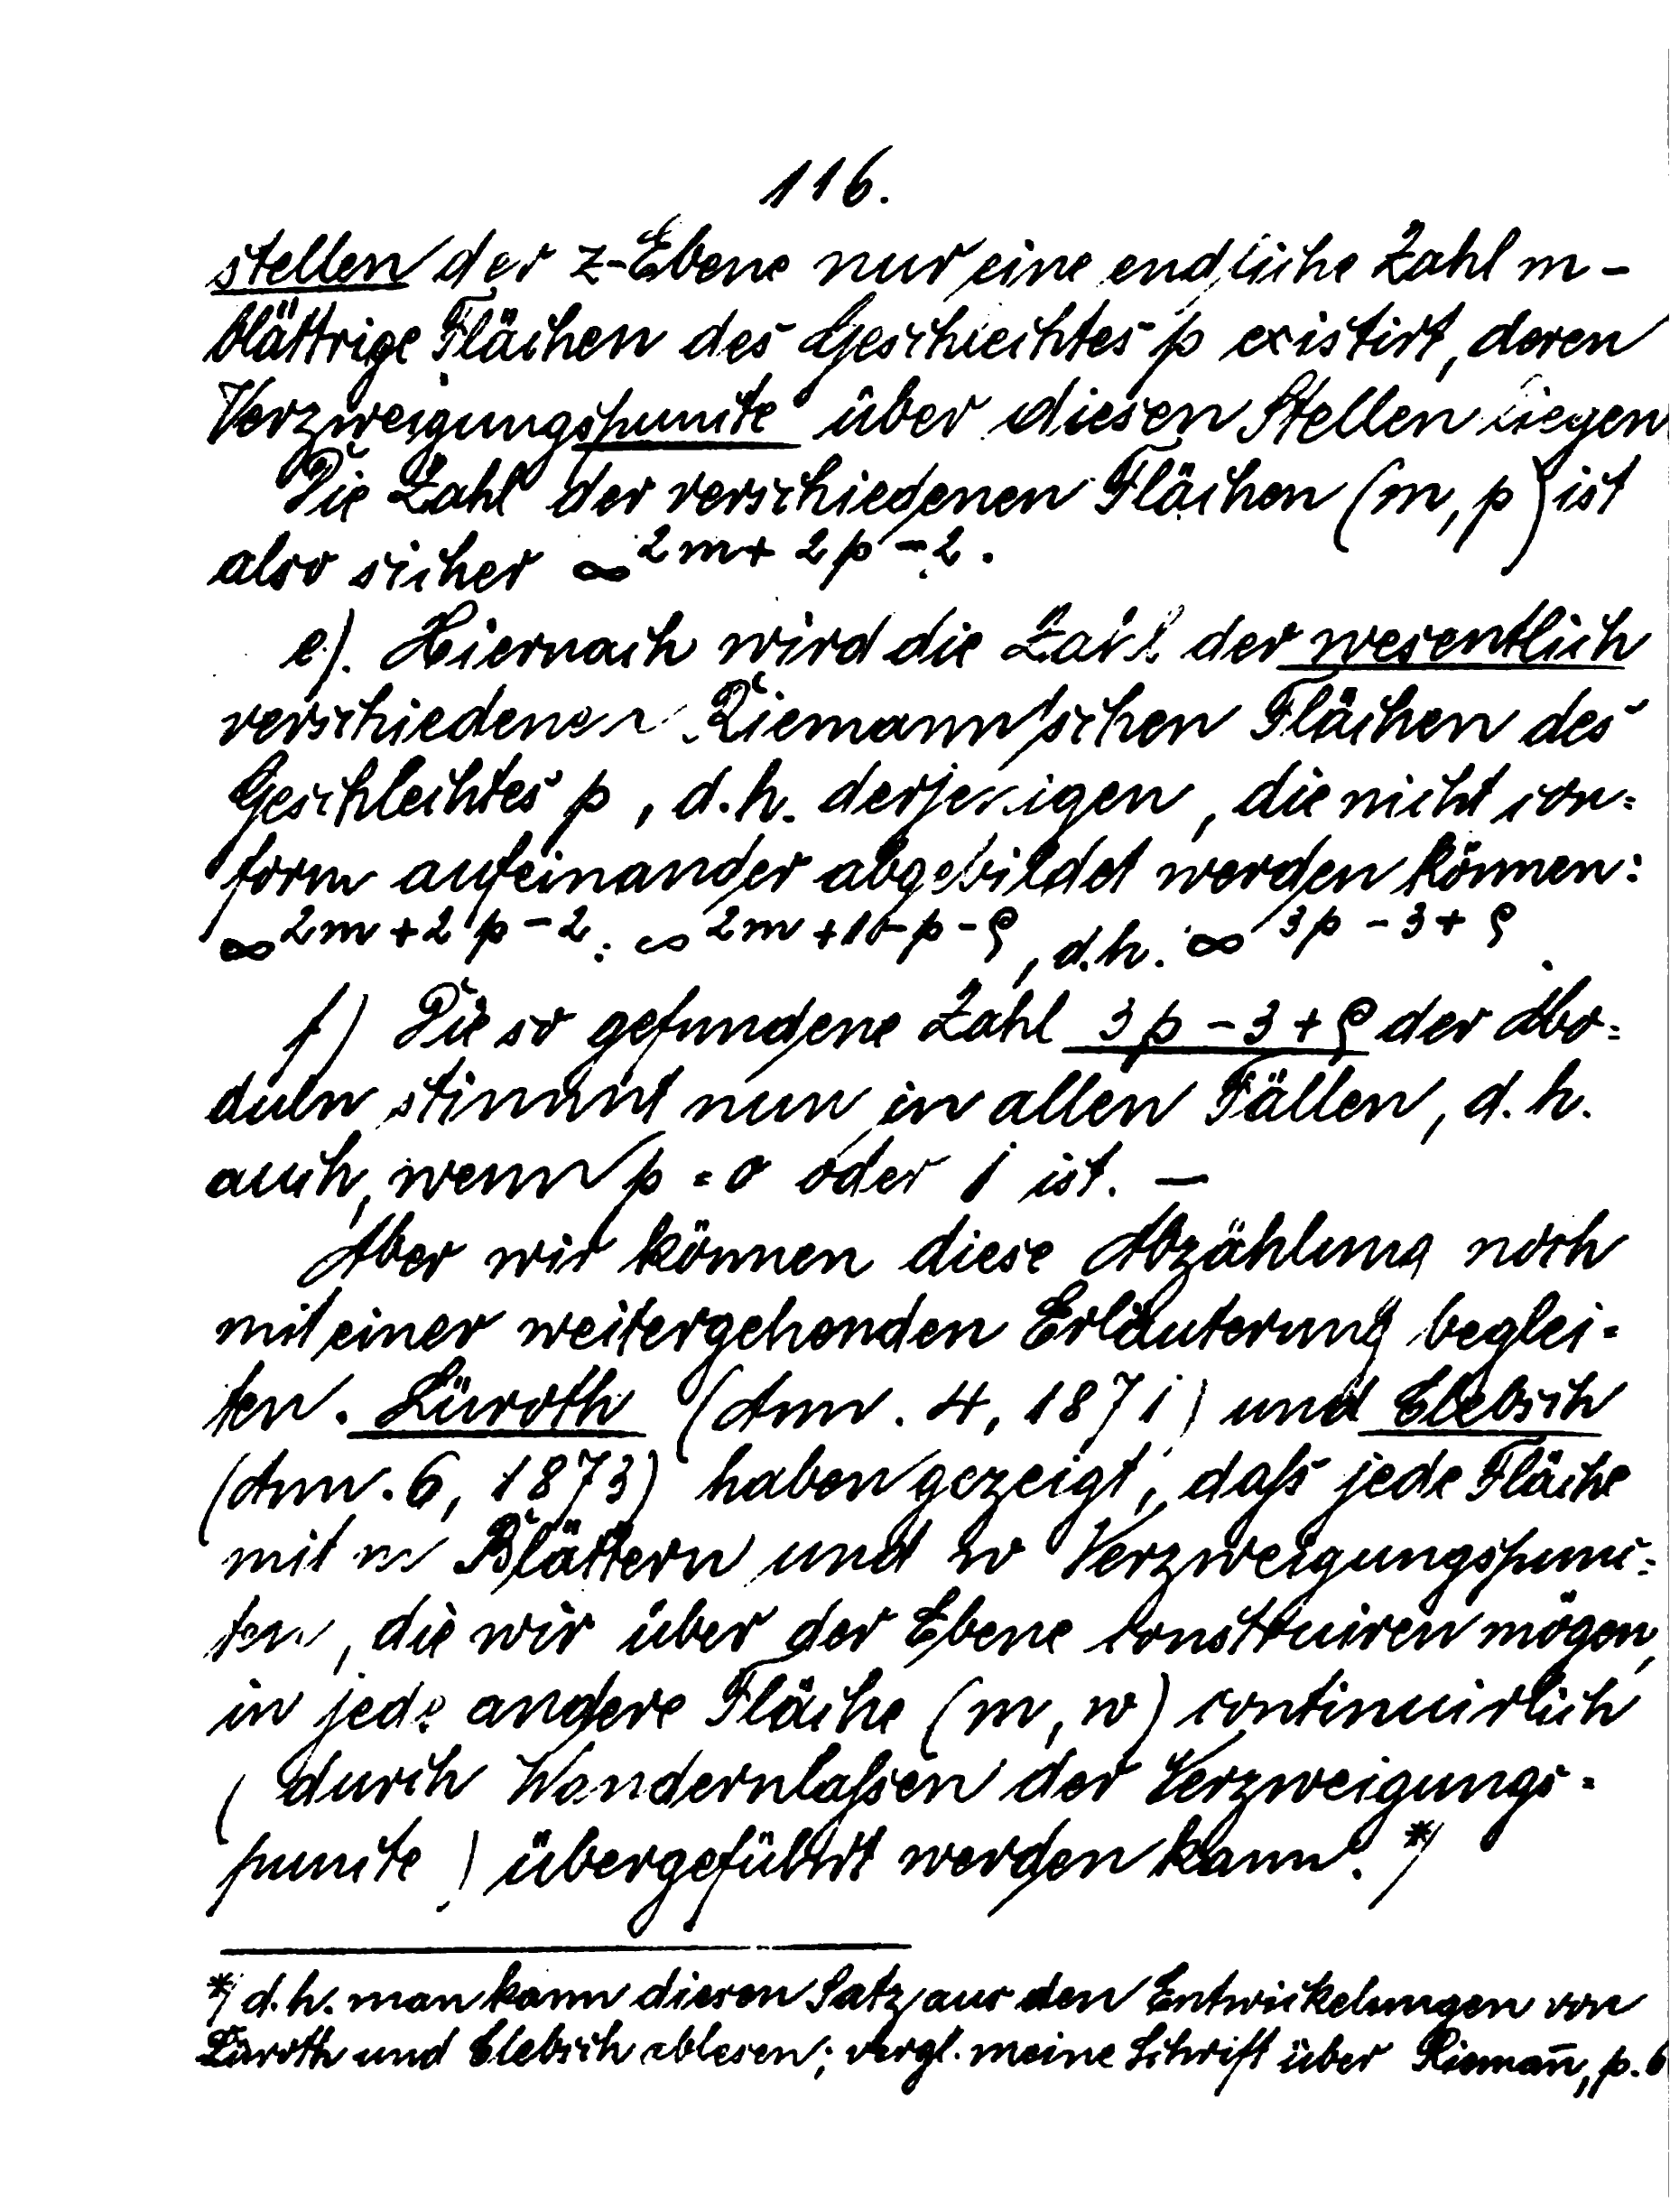 116.
stellen der z-Ebene nur eine endliche Zahl m-
blättrige Flächen des Geschlechtes p existirt, deren
Verzweigungspuncte über diesen Stellen liegen
Die Zahl der verschiedenen Flächen (m, p) ist
also sicher ∞^{2m+2p-2}.
e). Hiernach wird die Zahl der wesentlich
verschiedenen Riemann'schen Flächen des
Geschlechtes p, d.h. derjenigen, die nicht con=
form aufeinander abgebildet werden können:
∞^{2m+2p-2} : ∞^{2m+1-p-ρ}, d.h. ∞^{3p-3+ρ}.
f) Die so gefundene Zahl 3p-3+ρ der Mo=
duln stimmt nun in allen Fällen, d.h.
auch, wenn p = 0 oder 1 ist. —
Aber wir können diese Abzählung noch
mit einer weitergehenden Erläuterung beglei=
ten. Lüroth (Ann. 4, 1871) und Clebsch
(Ann. 6, 1873) haben gezeigt, daſs jede Fläche
mit m Blättern und w Verzweigungspunc=
ten, die wir über der Ebene construiren mögen,
in jede andere Fläche (m, w) continuirlich
(durch Wandernlaſsen der Verzweigungs=
puncte) übergeführt werden kann. *)
*) d.h. man kann diesen Satz aus den Entwickelungen von
Lüroth und Clebsch ablesen; vergl. meine Schrift über Riemañ, p. 6